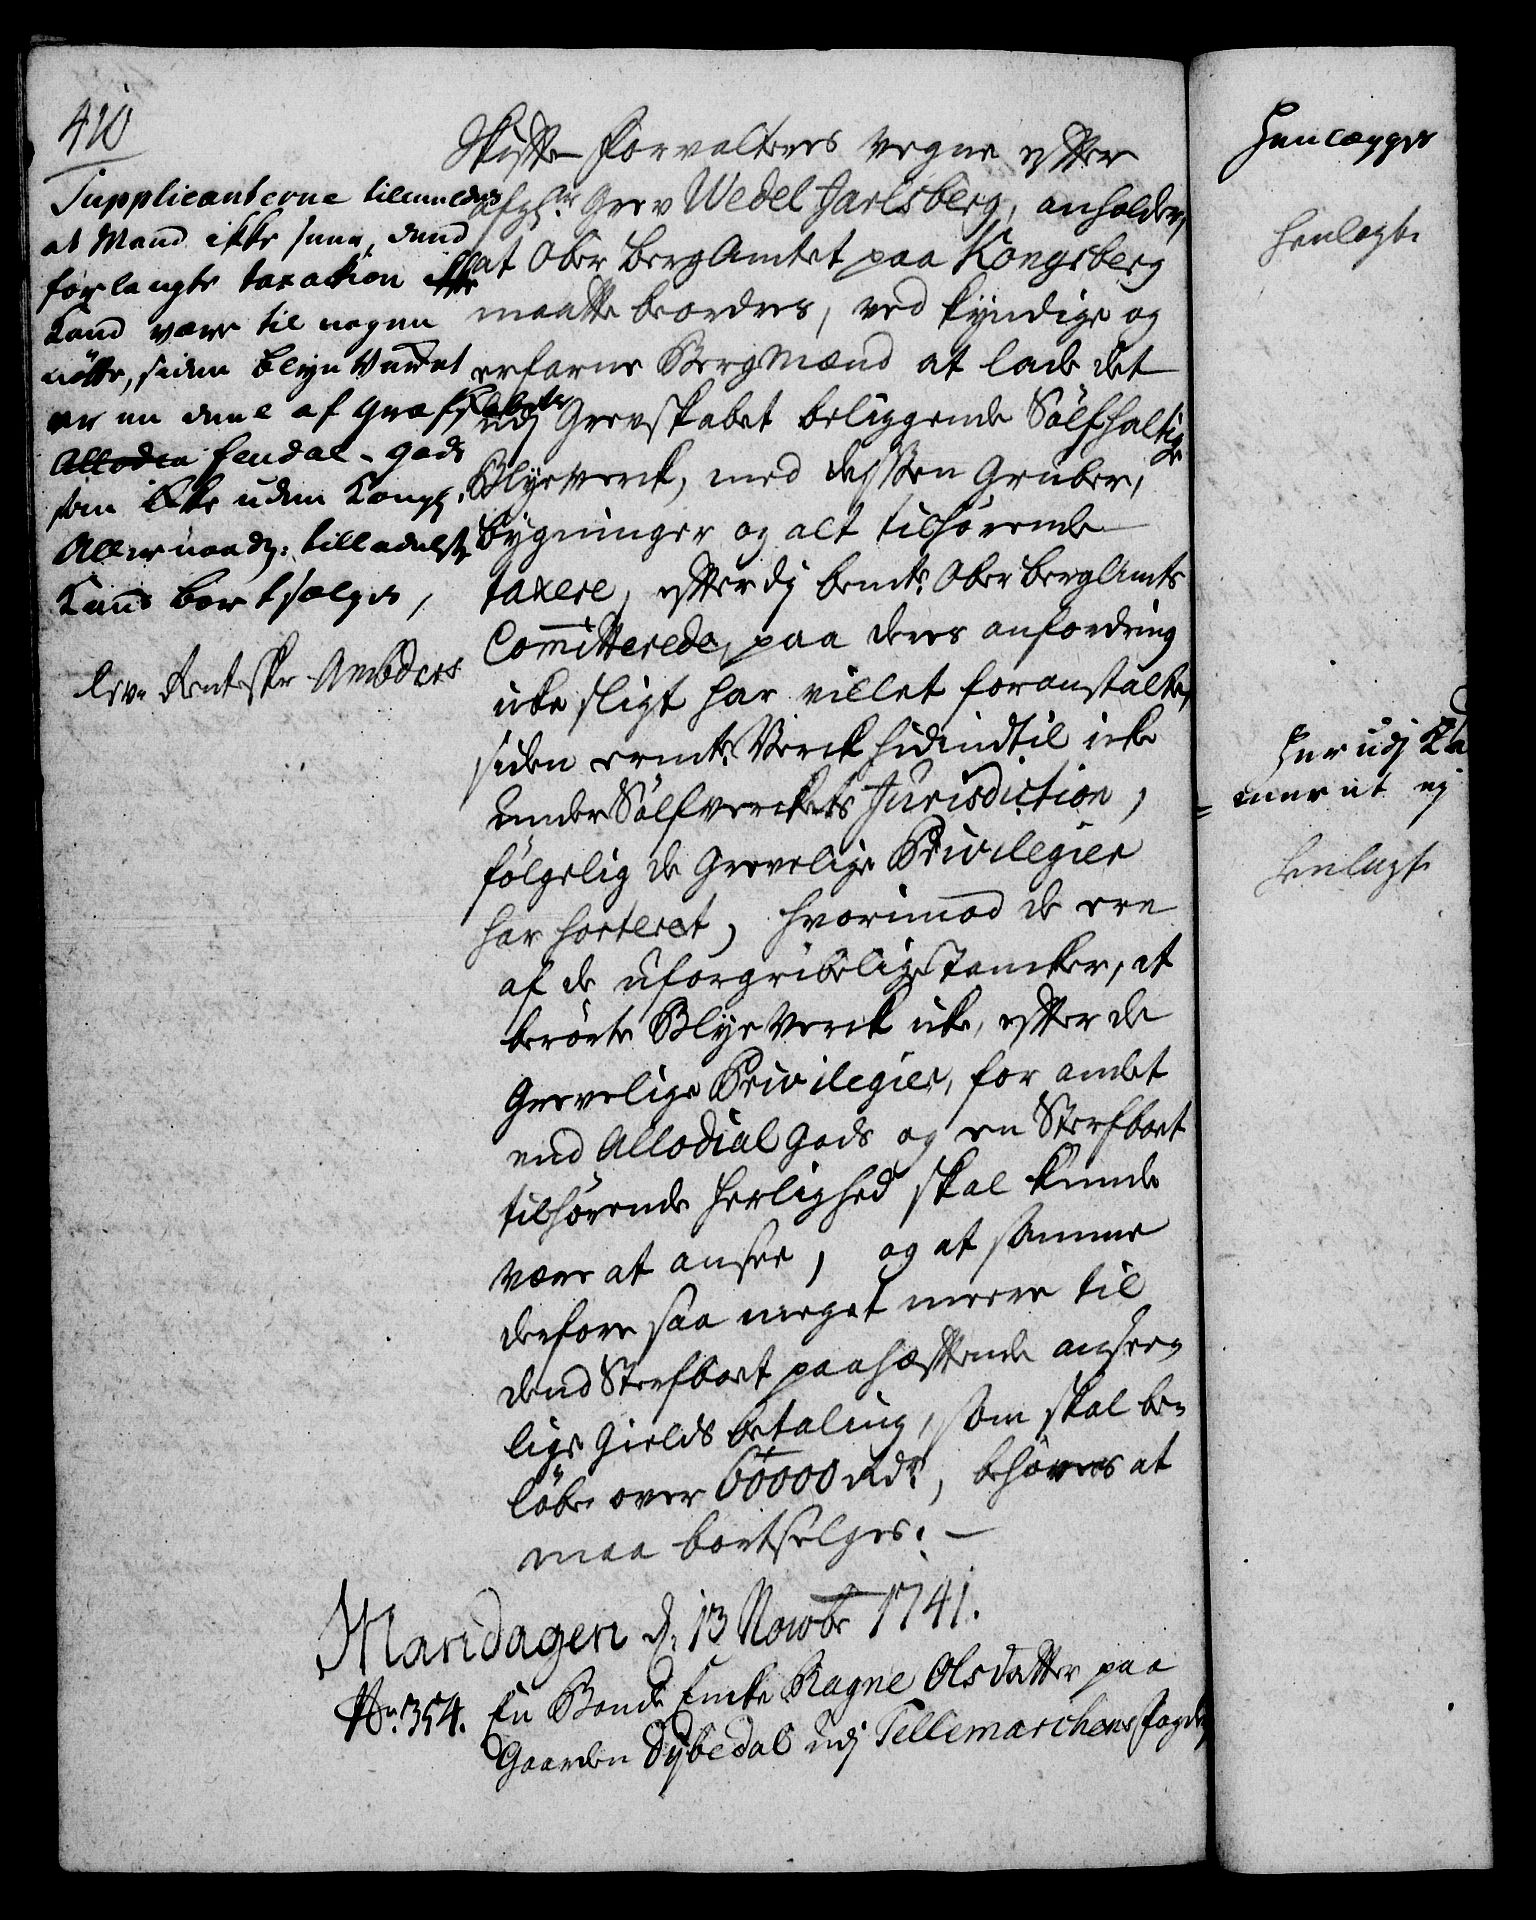 410
Supplicanterne tilmeldes
at Mand ikke seer, dend
forlangte taxation
Kand være til nogen
nötte, siden blye Værket
er en deel af Grefskabets
Allodia feudal-Gods
som ikke uden Kongl.
Allernaadg: tilladelse
Kand bortsælges,
Ambders
Skifte-Forvalteres vegne efter
afgl: Grev Wedel Jarlsberg, anholder,
at Ober Berg Amtet paa Kongsberg
maatte beordres, ved kyndige og
erfarne Bergmænd at lade det
udj Grevskabet beliggende Sölfholtige
Blye Verck, med desssen Gruber,
bygninger og alt tilhörende
taxere, efterdj bemte Ober Berg Amts
Committerede, paa deres anfordring
icke sligt har villet foranstalte,
siden ermte Verck hidindtil icke
under Sölfverckets Jurisdiction,
fölgelig de Grevelige Privilegier
har sorteret, hvorimod de ere
af de uforgribelige Tancker, at
berörte Blye Verck icke, efter de
Grevelige Privilegier, for andet
end Allodial Gods og en Sterfboet
tilhörende Herlighed skal kunde
være at ansee, og at samme
derfore saa meget meere til
dend Sterfboet paaheftende anseen-
lige Gields betaling, som skal be-
löbe over 60000 Rdr, behöves at
maa bortselges. —
Mandagen d. 13 Novbr 1741.
No. 354. En Bonde Encke Ragne Olsdatter paa
Gaarden Dybedal udj Tellemarchens Fogderj
Henlægges
henlagt.
Her udj Ka
= meret ej
henlagt.